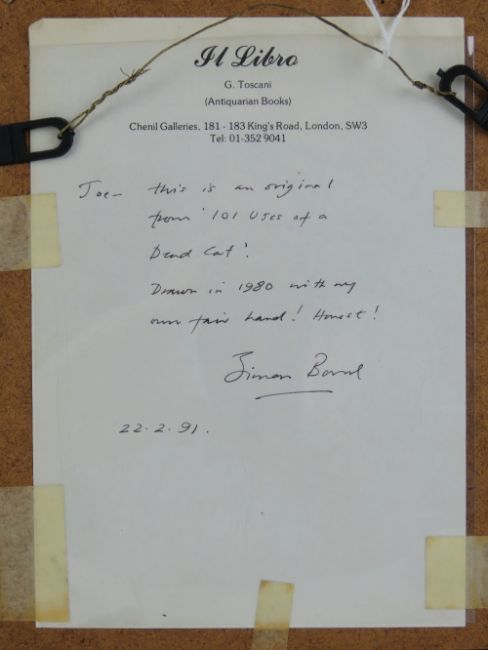 Il Libro
G. Toscani
(Antiquarian Books)
Chenil Galleries, 181 - 183 King's Road, London, SW3
Tel: 01-352 9041
Joe— this is an original
from '101 Uses of a
Dead Cat'.
Drawn in 1980 with my
own fair hand! Honest!
Simon Bond
22.2.91.